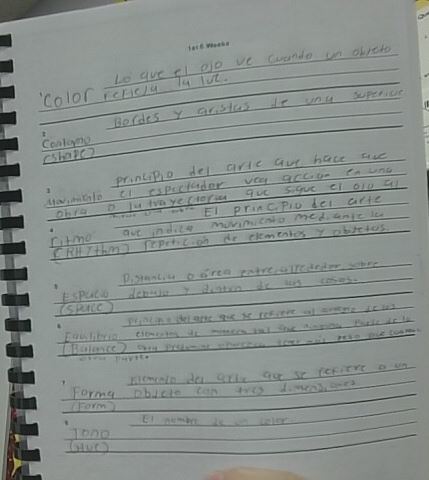 1st 6 Weeks
Lo que el ojo ve cuando un objeto
1 Color refleja la luz.
Bordes y aristas de una superficie
2
Contorno
(shape)
principio del arte que hace que
3
Movimiento el espectador vea acción en una
obra o la trayectoria que sigue el ojo al
El principio del arte
4
ritmo que indica movimiento mediante la
(RHYthm) repetición de elementos y objetos.
5 Distancia o área entre, alrededor, sobre
Espacio debajo y dentro de las cosas.
(SPace)
6 principio del arte que se refiere al de los
Equilibrio elementos de manera tal que ninguna parte de la
(Balance) obra
otra parte.
7 Elemento del arte que se refiere a un
Forma objeto con tres dimensiones
(Form)
8 El nombre de un color
Tono
(Hue)